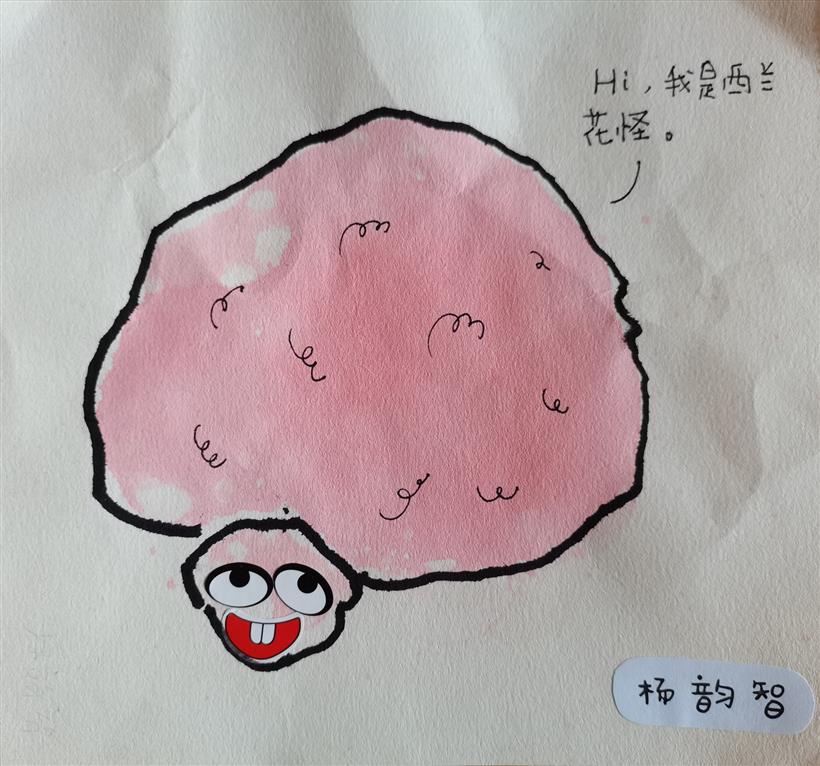 Hi，我是西兰
花怪。
杨韵智